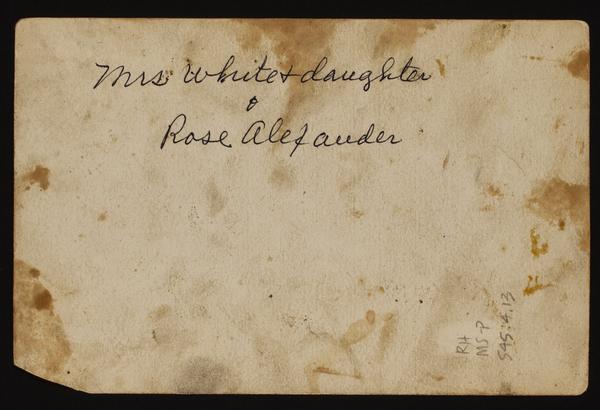 Mrs White & daughter
&
Rose Alexander
RH
MS-P
545:4.13